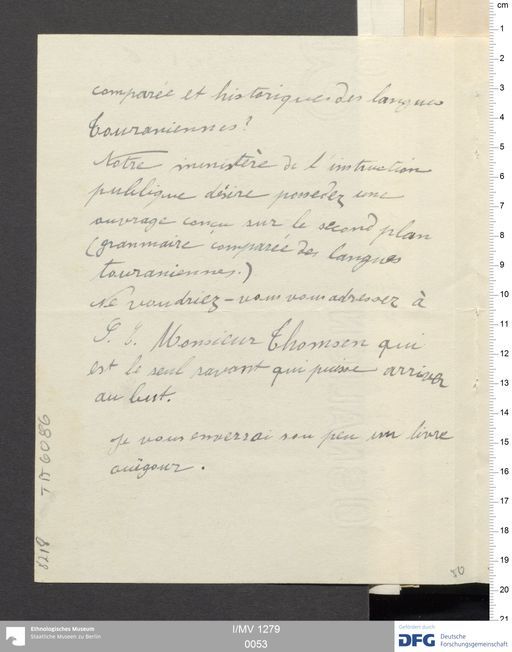 comparée et historiques des langues
touraniennes?
Notre ministère de l'instruction
publique désire possedez une
ouvrage concu sur le second plan
(grammaire comparée des langues
touraniennes.)
Ne voudriez-vous vous adressez à
Monsieur Thomsen qui
est le seul savant qui puisse arriver
au but.
Je vous enverrai sou peu un livre
ouïgour.
TA 6086
8218
50
cm
1
2
3
4
5
6
7
8
9
10
11
12
13
14
15
16
17
18
19
20
21
Ethnologisches Museum
Staatliche Museen zu Berlin
I/MV 1279
0053
Gefördert durch
DFG Deutsche
Forschungsgemeinschaft